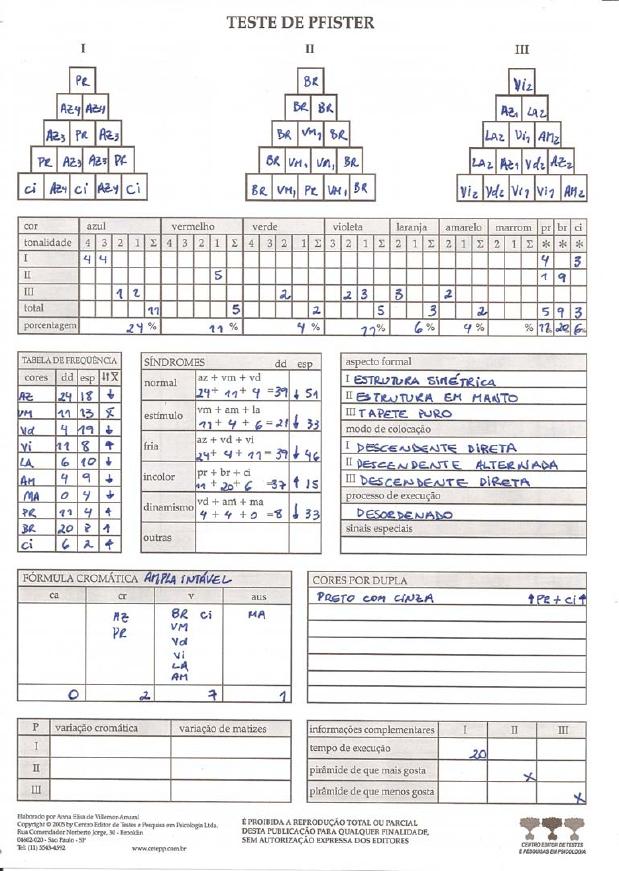 TESTE DE PFISTER
I II III
PR BR Vi2
AZ4 AZ4 BR BR AZ1 LA2
AZ3 PR AZ3 BR VM1 BR LA2 Vi1 AM2
PR AZ3 AZ3 PR BR VM1 VM1 BR LA2 AZ1 Vd2 AZ2
Ci AZ4 Ci AZ4 Ci BR VM1 PR VM1 BR Vi2 Vd2 Vi1 Vi1 AM2
cor azul vermelho verde violeta laranja amarelo marrom pr br ci
tonalidade 4 3 2 1 Σ 4 3 2 1 Σ 4 3 2 1 Σ 3 2 1 Σ 2 1 Σ 2 1 Σ 2 1 Σ * * *
I 4 4 4 3
II 5 1 9
III 1 2 2 2 3 3 2
total 11 5 2 5 3 2 5 9 3
porcentagem 24 % 11 % 4 % 11 % 6 % 4 % % 20 6
TABELA DE FREQÜÊNCIA
cores dd esp
AZ 24 18 ↓
VM 11 13 x̄
Vd 4 19 ↓
Vi 11 8 ↑
LA 6 10 ↓
AM 4 9 ↓
MA 0 4 ↓
PR 11 4 ↑
BR 20 7 ↑
Ci 6 2 ↑
SÍNDROMES dd esp
normal az + vm + vd
24 + 11 + 4 = 39 ↓ 51
estímulo vm + am + la
11 + 4 + 6 = 21 ↓ 33
fria az + vd + vi
24 + 4 + 11 = 39 ↓ 46
incolor pr + br + ci
11 + 20 + 6 = 37 ↑ 15
dinamismo vd + am + ma
4 + 4 + 0 = 8 ↓ 33
outras
aspecto formal
I ESTRUTURA SIMÉTRICA
II ESTRUTURA EM MANTO
III TAPETE PURO
modo de colocação
I DESCENDENTE DIRETA
II DESCENDENTE ALTERNADA
III DESCENDENTE DIRETA
processo de execução
DESORDENADO
sinais especiais
FÓRMULA CROMÁTICA AMPLA INTÁVEL
ca cr v aus
AZ BR Ci MA
PR VM
Vd
Vi
LA
AM
0 2 7 1
CORES POR DUPLA
PRETO COM CINZA ↑PR + Ci↑
P variação cromática variação de matizes
I
II
III
informações complementares I II III
tempo de execução 20
pirâmide de que mais gosta x
pirâmide de que menos gosta x
Elaborado por Anna Elisa de Villemor-Amaral
Copyright © 2005 by Centro Editor de Testes e Pesquisa em Psicologia Ltda.
Rua Comendador Norberto Jorge, 30 - Brooklin
04602-020 - São Paulo - SP
Tel: (11) 5543-4592 www.cetepp.com.br
É PROIBIDA A REPRODUÇÃO TOTAL OU PARCIAL
DESTA PUBLICAÇÃO PARA QUALQUER FINALIDADE,
SEM AUTORIZAÇÃO EXPRESSA DOS EDITORES
CENTRO EDITOR DE TESTES
E PESQUISAS EM PSICOLOGIA